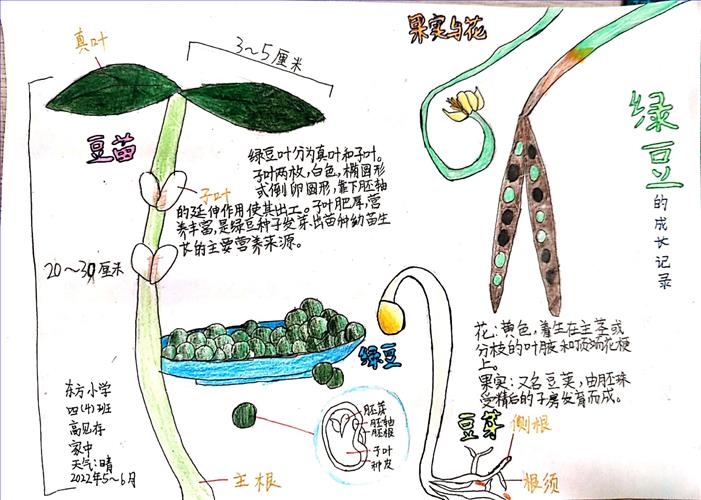 真叶
3～5厘米
果实与花
绿豆
的成长记录
豆苗
绿豆叶分为真叶和子叶。
子叶两枚,白色,椭圆形
或倒卵圆形,靠下胚轴
的延伸作用使其出工。子叶肥厚,营
养丰富,是绿豆种子发芽、出苗和幼苗生
长的主要营养来源。
子叶
20～30厘米
绿豆
花:黄色,着生在主茎或
分枝的叶腋和顶端花梗
上。
果实:又名豆荚,由胚珠
受精后的子房发育而成。
东方小学
四(4)班
家中
天气:晴
2022年5～6月
胚芽
胚轴
胚根
子叶
种皮
豆芽
侧根
主根
根须